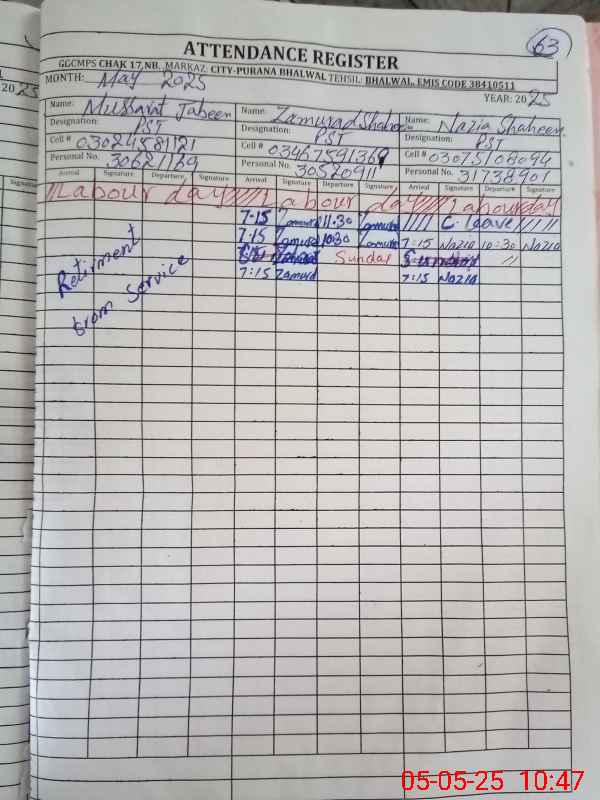 63
ATTENDANCE REGISTER
GGCMPS CHAK 17,NB, MARKAZ: CITY-PURANA BHALWAL TEHSIL: BHALWAL, EMIS CODE 38410511
MONTH: May 2025 YEAR: 2025
Name: Mussarat Jabeen Name: Zamurad Shaheen Name: Nazia Shaheen
Designation: PST Designation: PST Designation: PST
Cell # 03024581121 Cell # 03467591369 Cell # 03075108094
Personal No. 30621169 Personal No. 30520911 Personal No. 31738901
Arrival Signature Departure Signature Arrival Signature Departure Signature Arrival Signature Departure Signature
Labour day Labour day Labour day
7-15 Zamurd 11.30 Zamurd C. leave
7.15 Zamurd 10:30 Zamurd 7:15 Nazia 10:30 Nazia
Sunday Sunday
7:15 Zamurd 7:15 Nazia
Retirment
from service
2025
Signature
05-05-25 10:47